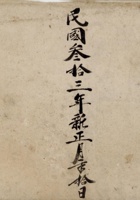 民國叁拾三年新正月拾日